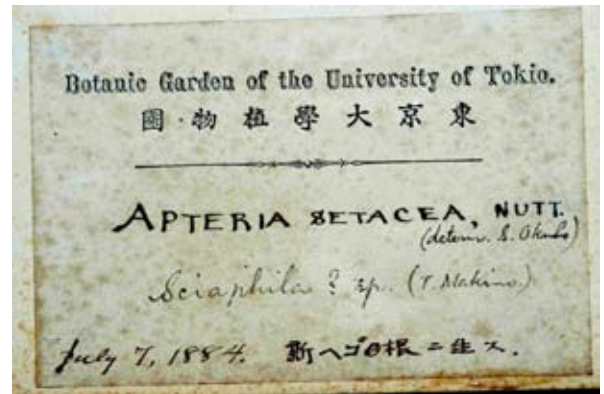 Botanic Garden of the University of Tokio.
東京大學植物園
APTERIA SETACEA, NUTT.
(determ. S. Okubo)
Sciaphila ? sp. (T. Makino.)
July 7, 1884. ヘゴノ根ニ生ス.